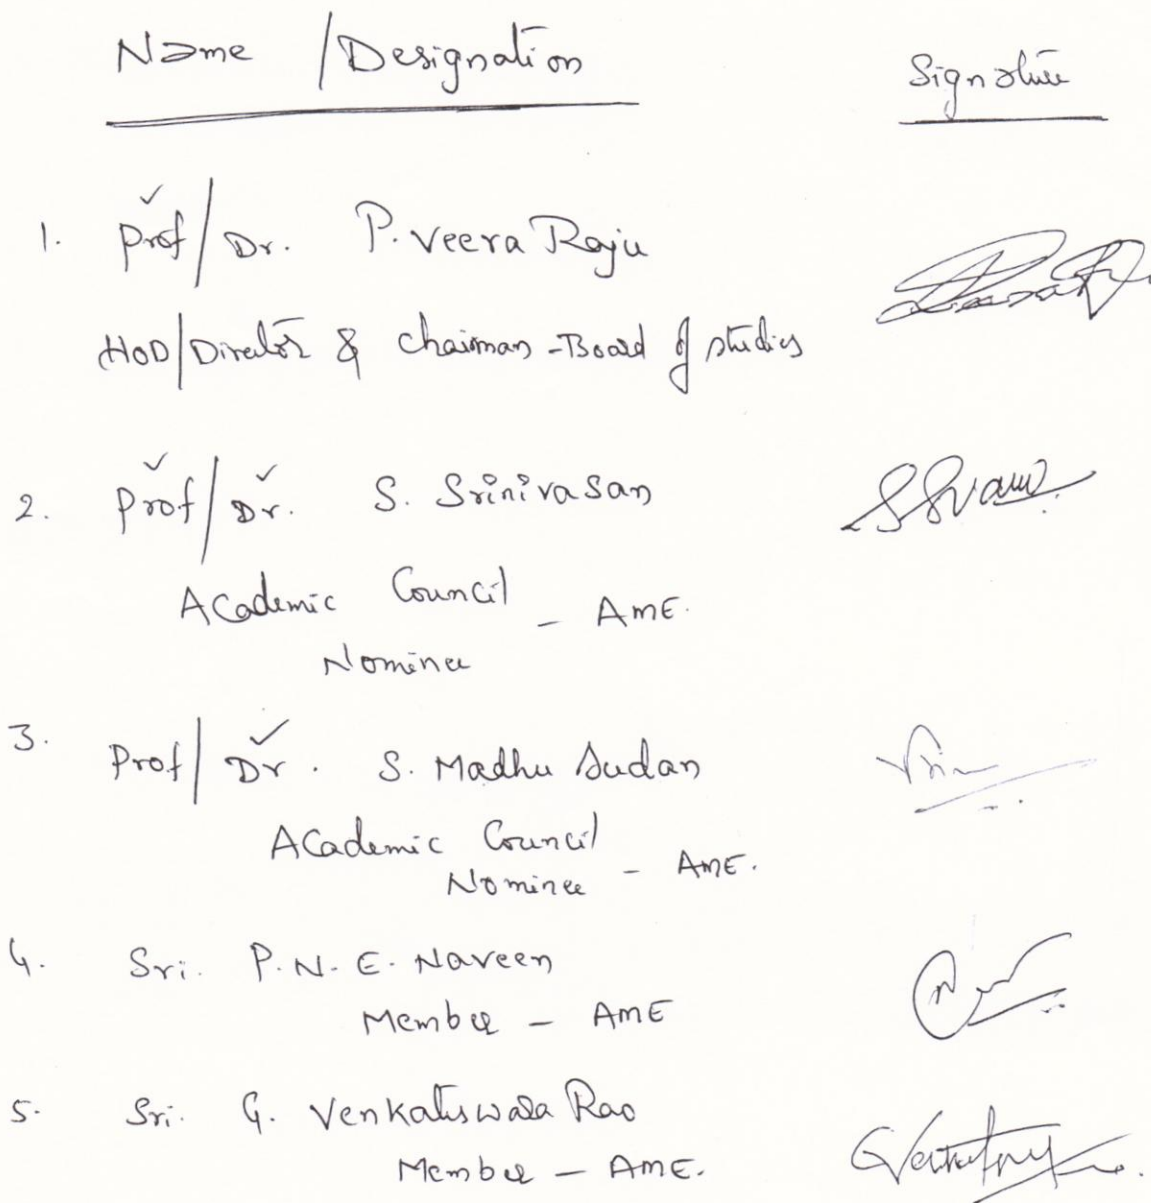 Name / Designation Signature
1. Prof / Dr. P. Veera Raju
HOD/Director & Chairman - Board of studies
2. Prof / Dr. S. Srinivasan
Academic Council - AME.
Nominee
3. Prof / Dr. S. Madhu Sudan
Academic Council
Nominee - AME.
4. Sri. P. N. E. Naveen
Member - AME
5. Sri. G. Venkateswara Rao
Member - AME.